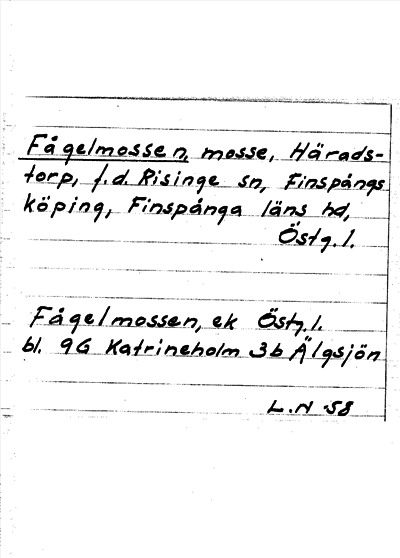 Fågelmossen, mosse, Härads-
torp, f.d. Risinge sn, Finspångs
köping, Finspånga läns hd,
Östg.l.
Fågelmossen, ek Östg.l.
bl. 9G Katrineholm 3b Älgsjön
L.N 58